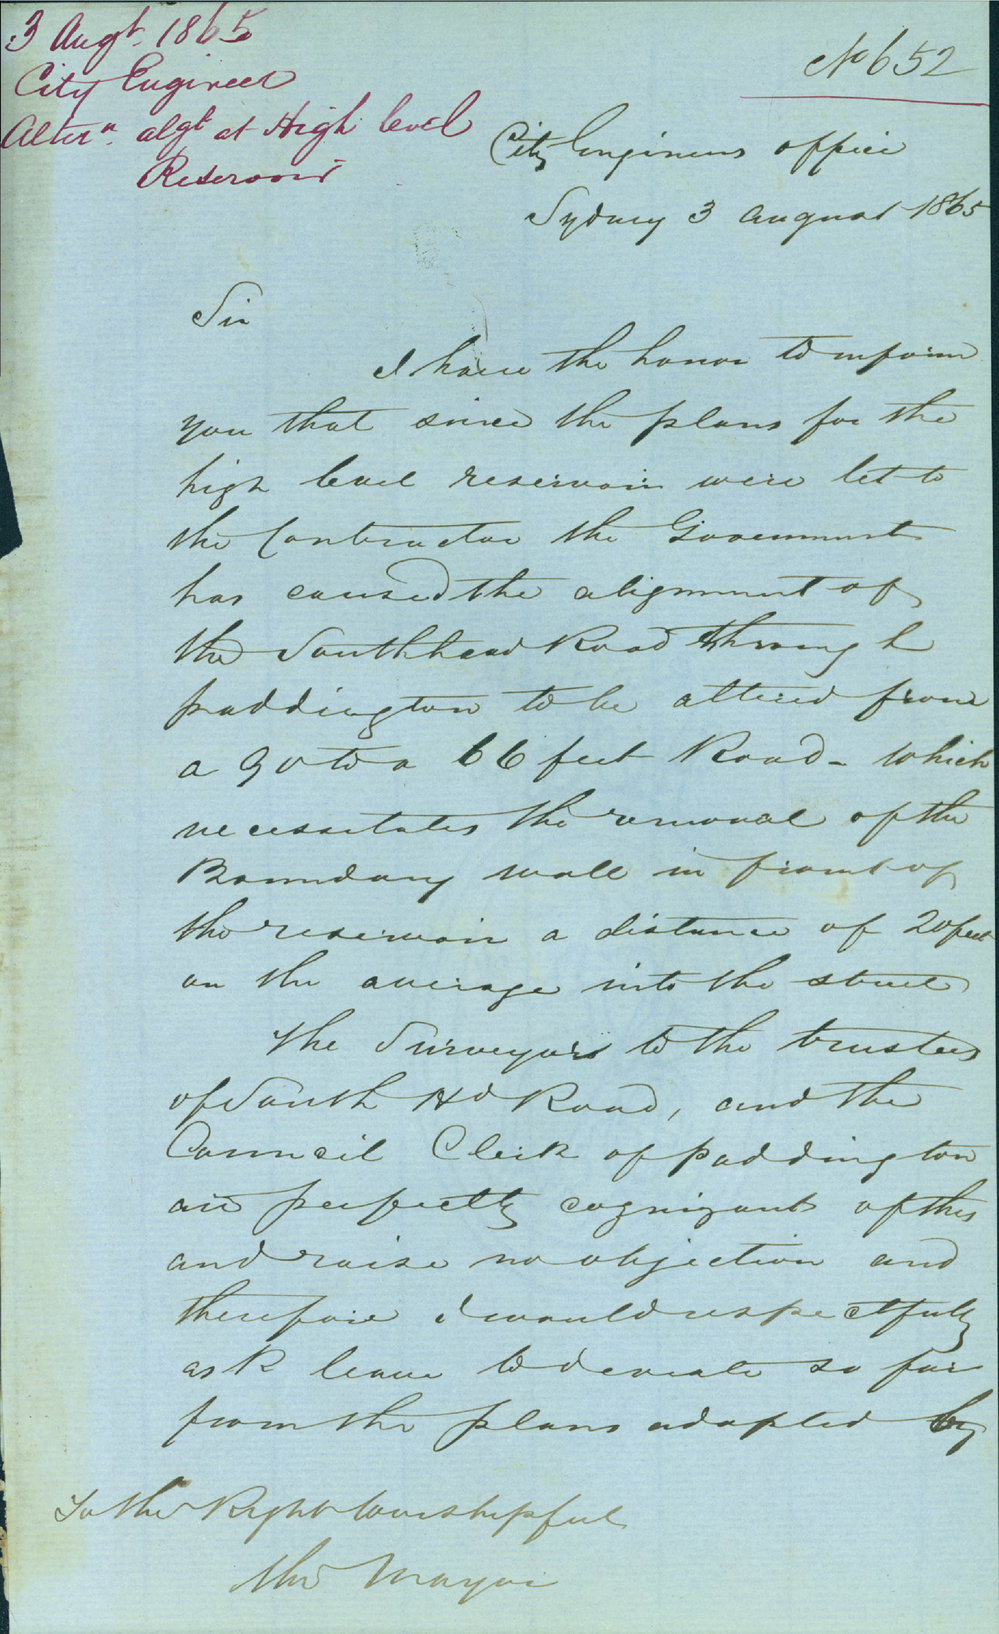 3 Augt. 1865
City Engineer
Altern. algt at High level
Reservoir
No 652
City Engineers office
Sydney 3 August 1865
Sir
I have the honor to inform
you that since the plans for the
high level reservoir were let to
the Contractor the Government
has caused the alignment of
the Southhead Road through
paddington to be altered from
a 90 to a 66 feet Road - which
necessitates the removal of the
Boundary wall in front of
the reservoir a distance of 20 feet
on the average into the street
The Surveyors to the trustees
of South Hd Road, and the
Council Clerk of paddington
are perfectly cognizant of this
and raise no objection and
therefore I would respectfully
ask leave to deviate so far
from the plans adopted by
To the Right Worshipful
the Mayor